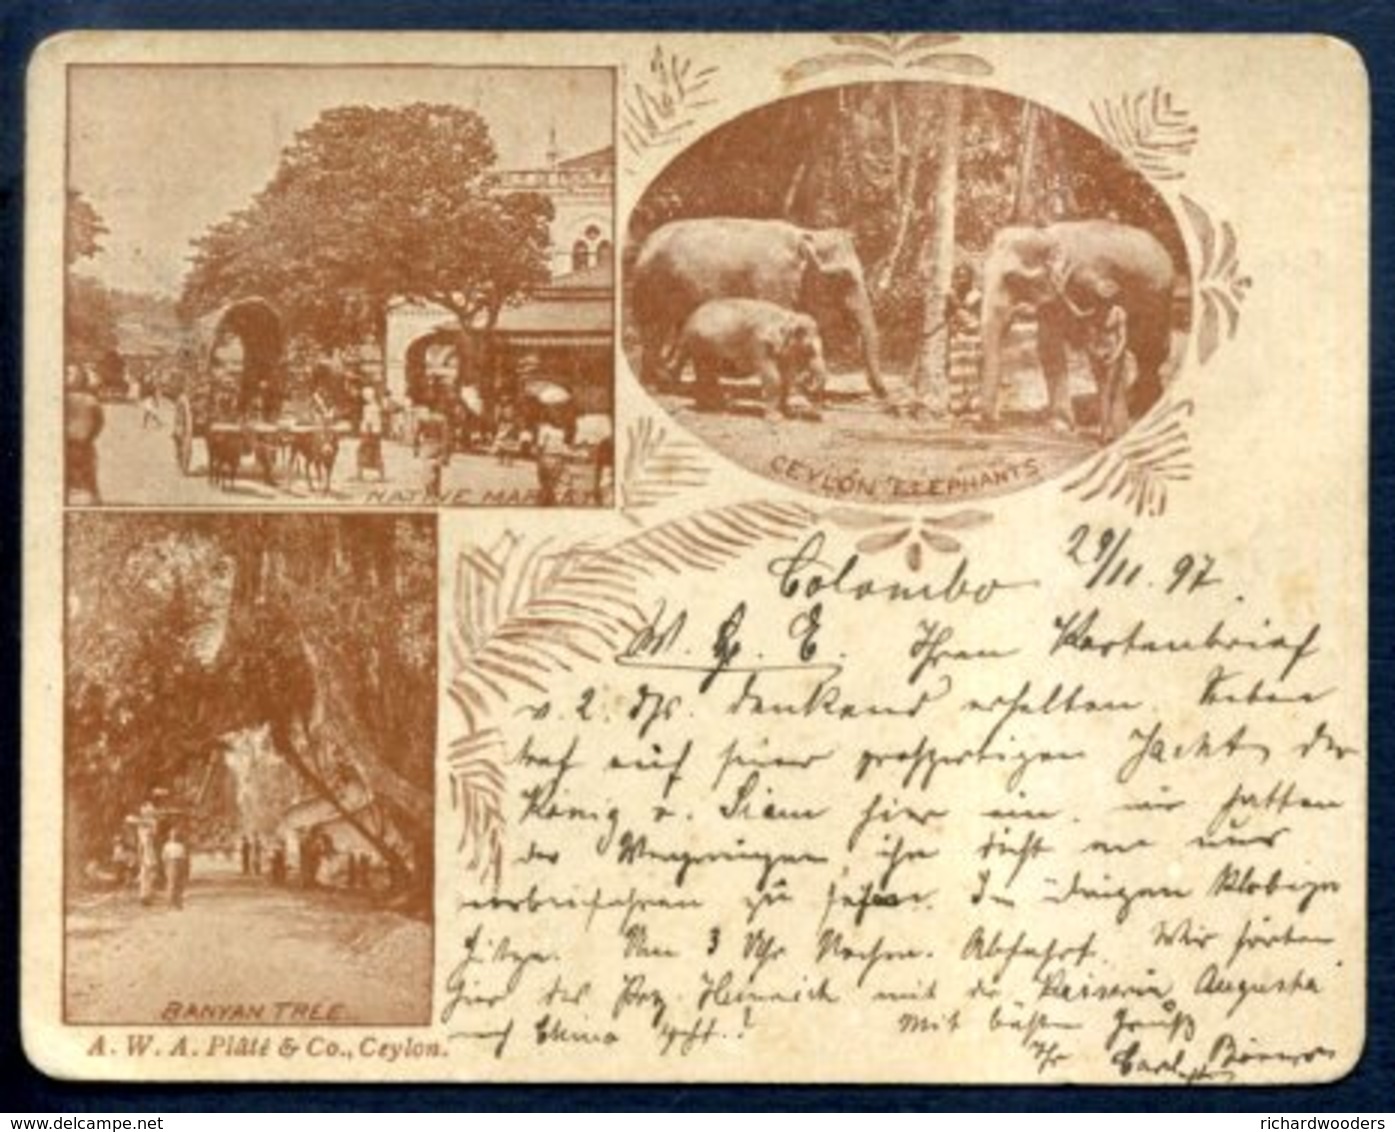 NATIVE MARKET
CEYLON ELEPHANTS
Colombo 29/11. 97.
W. G. E. Ihren Kartenbrief
v. 2. ds. dankend erhalten. Soeben
traf auf seiner großartigen Jacht der
König v. Siam hier ein. wir hatten
das Vergnügen, ihn dicht an uns
vorbeifahren zu sehen. In
Hitze. Um 3 Uhr Nachm. Abfahrt. Wir hörten
hier das Prz. Heinrich mit der "Kaiserin Augusta"
nach China geht.! Mit besten Gruß
Ihr Carl
BANYAN TREE
A. W. A. Plâté & Co., Ceylon.
delcampe.net
richardwooders